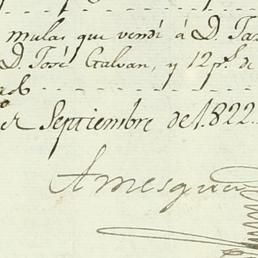 mulas que vendi á D.
D. José Galvan, y 12 p.s de
Septiembre de 1822.
Amesqu